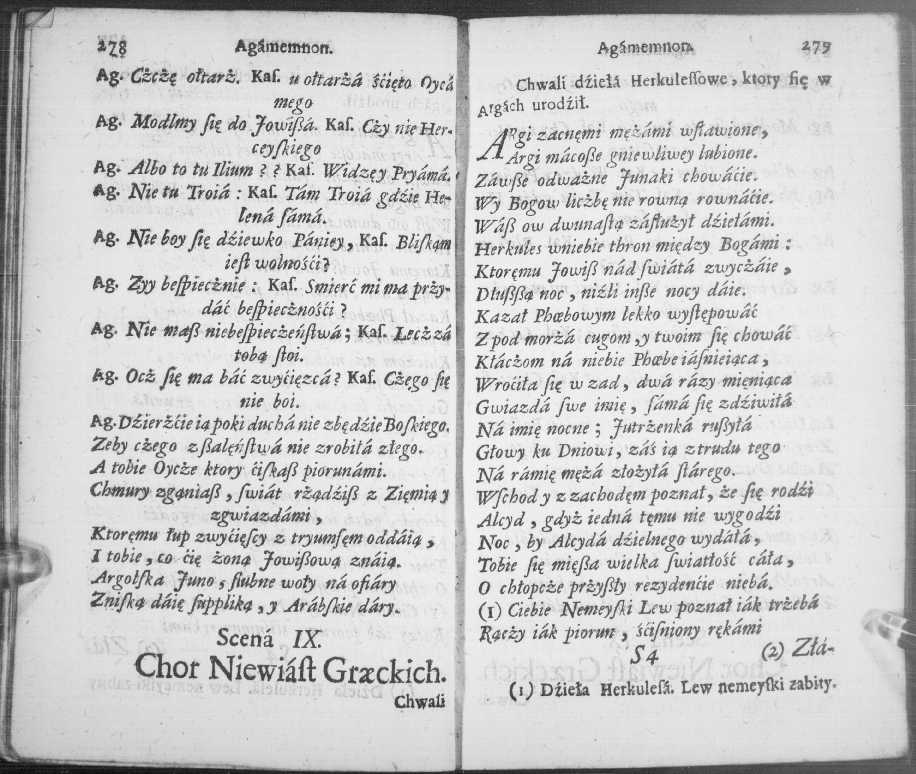 278
Agámemnon.
Ag. Cżcżę ołtarż. Kaſ. u ołtarżá śćięto Oycá
mego
Ag. Modlmy ſię do Jowiſzá. Kaſ. Cży nie Her-
ceyſkiego
Ag. Albo to tu Ilium ? ? Kaſ. Widzę y Pryámá.
Ag. Nie tu Troiá : Kaſ. Tám Troiá gdźie He-
lená ſámá.
Ag. Nie boy ſię dźiewko Pániey, Kaſ. Bliſkąm
ieſt wolnośći?
Ag. Zyy beſpiecżnie : Kaſ. Smierć mi ma przy-
dáć beſpiecżnośći ?
Ag. Nie maſz niebeſpiecżeńſtwá; Kaſ. Lecż zá
tobą ſtoi.
Ag. Ocż ſię ma báć zwyćięzcá? Kaſ. Cżego ſię
nie boi.
Ag. Dźierżćie ią poki duchá nie zbędźie Boſkiego.
Zeby cżego z ſzaleńſtwá nie zrobiłá złego.
A tobie Oycże ktory ćiſkaſz piorunámi.
Chmury zgąniaſz, ſwiát rżądźiſz z Ziemią y
zgwiazdámi,
Ktoremu łup zwyćięſcy z tryumſęm oddáią,
I tobie, co ćię żoną Jowiſzową znáią.
Argolſka Juno, ſlubne woły ná ofiáry
Zniſką dáię ſuppliką, y Arábſkie dáry.
Scená IX.
Chor Niewiáſt Græckich.
Chwali
Agámemnon.
279
Chwali dźiełá Herkuleſſowe, ktory ſię w
Argách urodźił.
ARgi zacnęmi mężámi wſławione,
Argi mácoſze gniewliwey lubione.
Záwſze odważne Junaki chowáćie.
Wy Bogow liczbę nie rowną rownáćie.
Wáſz ow dwunaſtą záſłużył dźiełámi.
Herkules wniebie thron między Bogámi :
Ktoręmu Jowiſz nád ſwiátá zwyczáie,
Dłuſzſzą noc, niźli inſze nocy dáie.
Kazał Phœbowym lekko wyſtępowáć
Z pod morżá cugom, y twoim ſię chowáć
Kłáczom ná niebie Phœbe iáśnieiąca,
Wroćiła ſię w zad, dwá rázy mięniąca
Gwiazdá ſwe imię, ſámá ſię zdźiwiłá
Ná imię nocne ; Jutrżenká ruſzyłá
Głowy ku Dniowi, záś ią z trudu tego
Ná rámię mężá złożyłá ſtárego.
Wſchod y z zachodęm poznał, że ſię rodźi
Alcyd, gdyż iedná tęmu nie wygodźi
Noc, by Alcydá dźielnego wydáłá,
Tobie ſię mięſzá wielka ſwiatłość cáła,
O chłopcże przyſzły rezydenćie niebá.
(1) Ciebie Nemeyſki Lew poznał iák trżebá
Rączy iák piorun, śćiſniony rękámi
S4
(2) Złá-
(1) Dźieła Herkuleſá. Lew nemeyſki zabity.